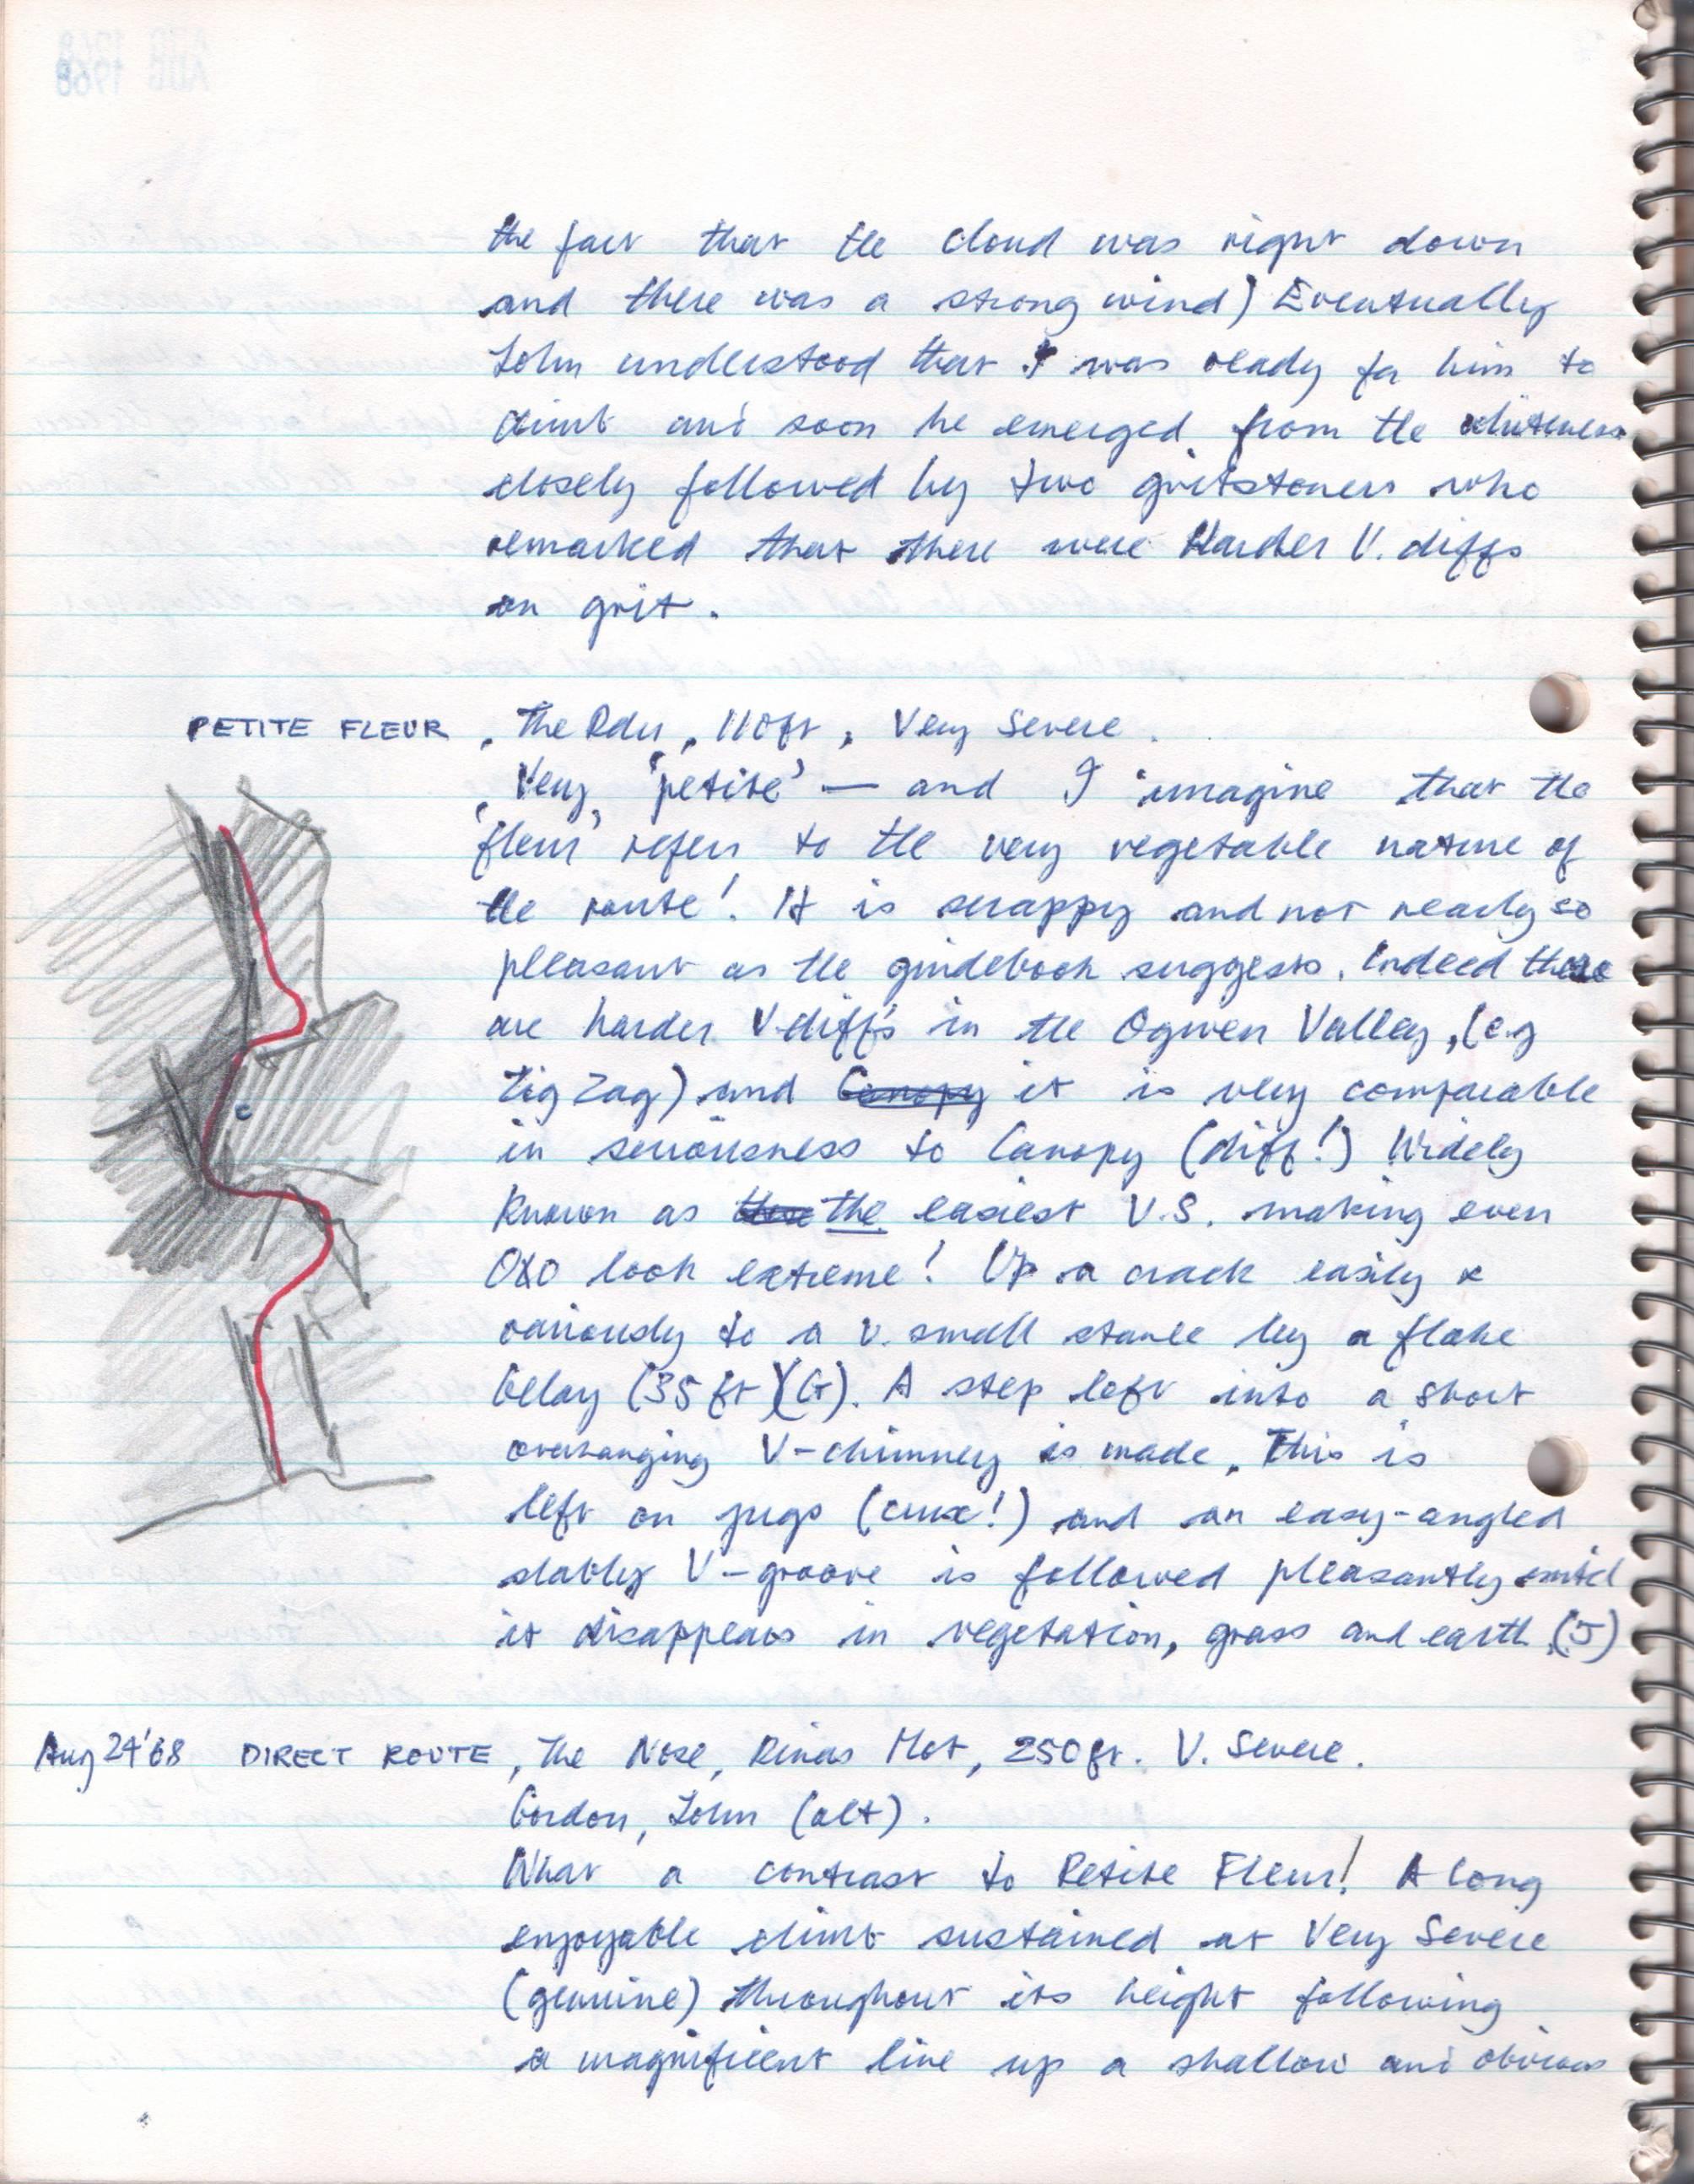 the fact that the cloud was right down
and there was a strong wind) Eventually
John understood that I was ready for him to
climb and soon he emerged from the whiteness
closely followed by two gritstoners who
remarked that there were Harder V. diffs
on grit.
PETITE FLEUR, The Rdu, 110ft, Very Severe.
Very 'petite' — and I imagine that the
'fleur' refers to the very vegetable nature of
the route! It is scrappy and not nearly so
pleasant as the guidebook suggests. Indeed there
are harder V-diffs in the Ogwen Valley, (e.g
Zig Zag) and Canopy it is very comparable
in seriousness to Canopy (diff!) Widely
known as the easiest V.S. making even
OXO look extreme! Up a crack easily &
variously to a v. small stance by a flake
belay (35 ft)(G). A step left into a short
overhanging V-chimney is made. This is
left on jugs (crux!) and an easy-angled
slabby V-groove is followed pleasantly until
it disappears in vegetation, grass and earth (J)
c
Aug 24 '68 DIRECT ROUTE, The Nose, Dinas Mot, 250ft. V. Severe.
Gordon, John (alt).
What a contrast to Petite Fleur! A long
enjoyable climb sustained at Very Severe
(genuine) throughout its height following
a magnificent line up a shallow and obvious